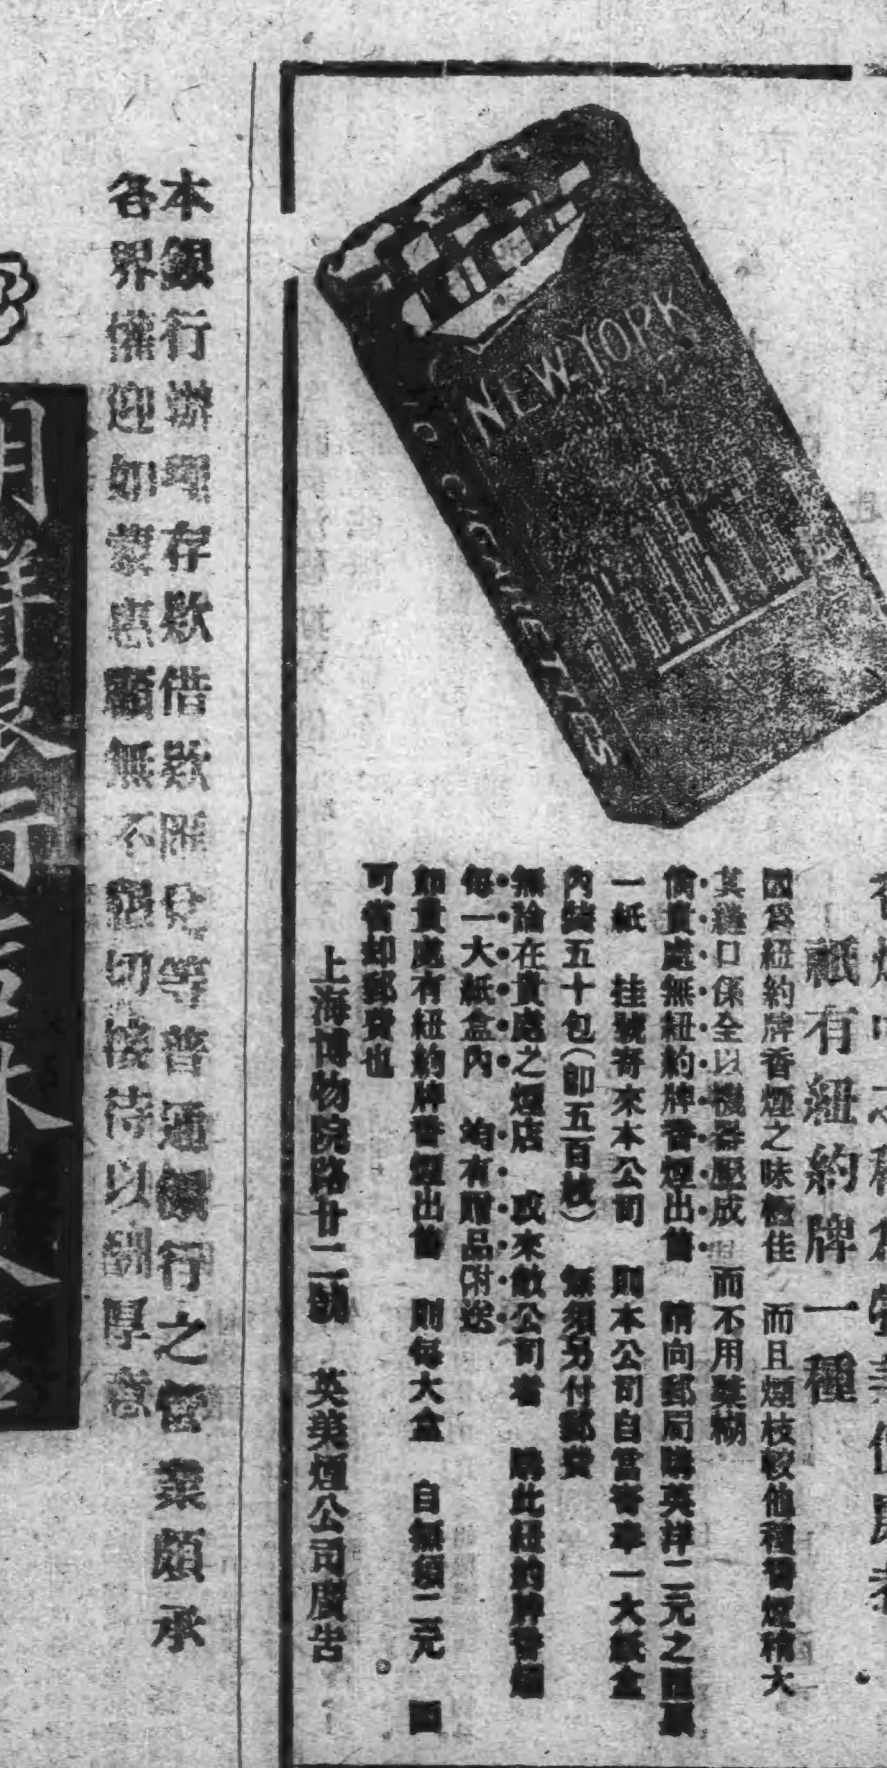 NEW YORK
CIGARETTES
祇有紐約牌一種
因爲紐約牌香煙之味極佳 而且煙枝較他種香煙稍大
其縫口係全以機器壓成 而不用漿糊
倘貴處無紐約牌香煙出售 請向郵局購英洋二元之匯票
一紙 挂號寄來本公司 則本公司自當寄奉一大紙盒
內裝五十包(卽五百枚) 無須另付郵費
無論在貴處之煙店 或來敝公司者 購此紐約牌香煙
每一大紙盒內 均有贈品附送
如貴處有紐約牌香煙出售 則每大盒 自無須二元
可省却郵費也
上海博物院路廿二號 英美煙公司廣告
本銀行辦理存款借款匯兌等普通銀行之營業頗承
各界懽迎如蒙惠顧無不親切接待以酬厚意
朝鮮銀行